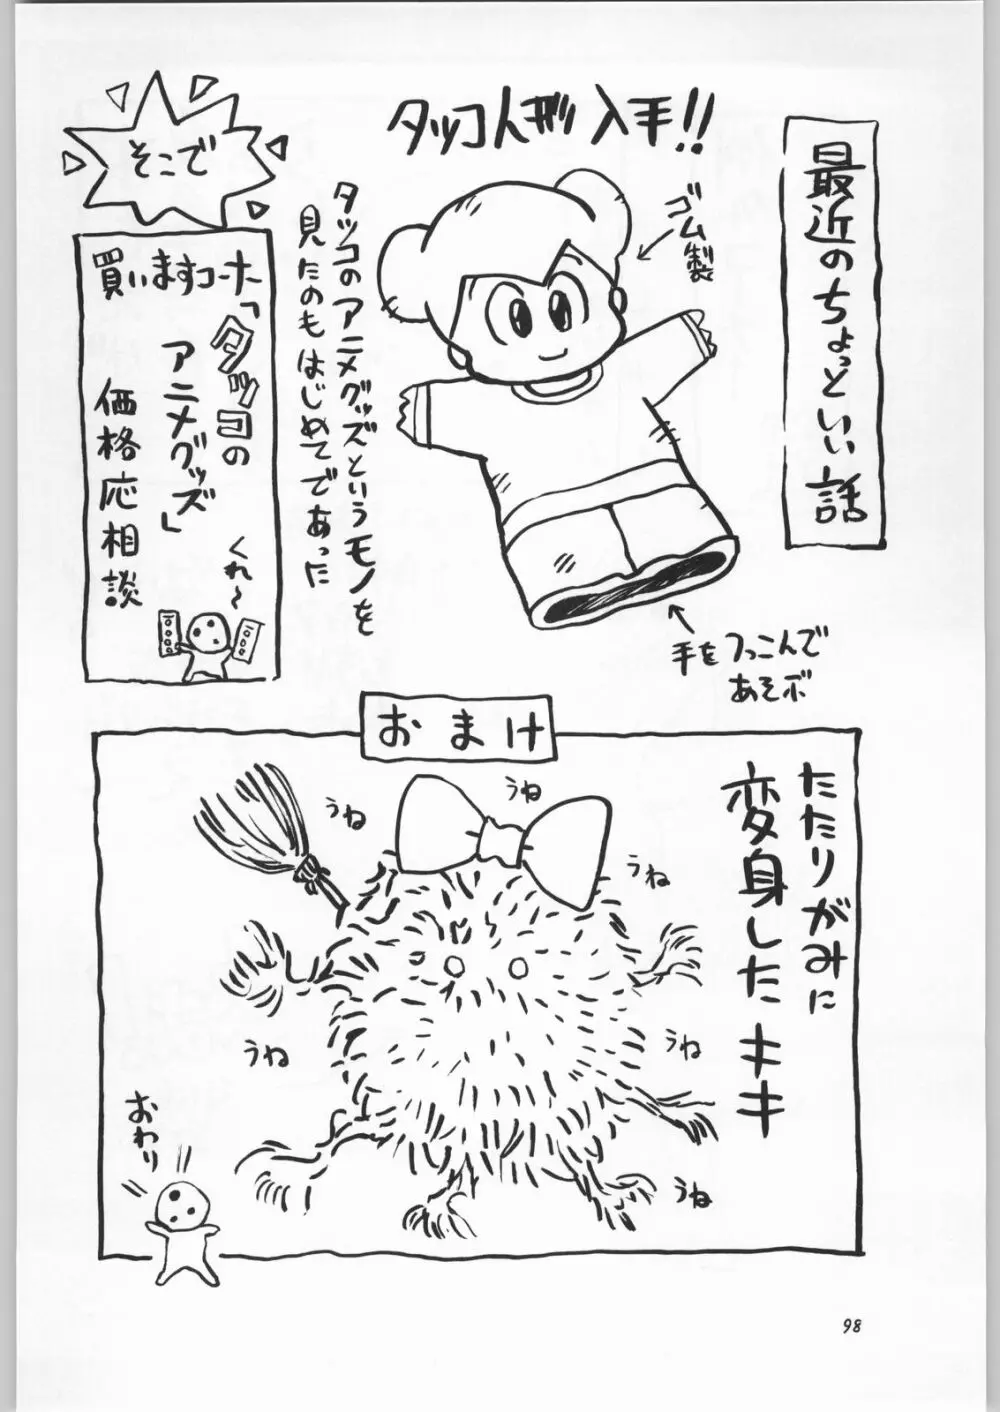 最近のちょっといい話
タッコ人形 入手!!
ゴム製
タッコのアニメグッズというモノを
見たのもはじめてであった
手をつっこんで
あそボ
そこで
買いますコーナー
「タッコの
アニメグッズ」
価格応相談
くれ〜
おまけ
たたりがみに
変身したキキ
うね
うね
うね
うね
うね
うね
おわり
98